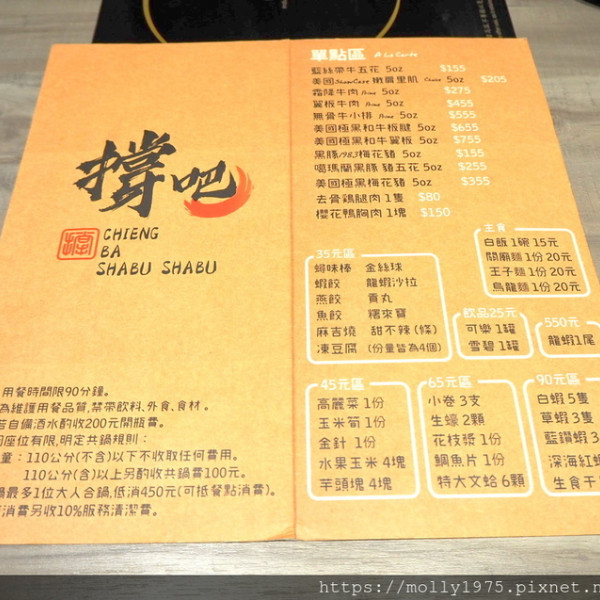 撐吧
CHIENG
BA
SHABU SHABU
用餐時間限90分鐘。
為維護用餐品質,禁帶飲料、外食、食材。
若自備酒水酌收200元開瓶費。
座位有限,明定共鍋規則:
童:110公分(不含)以下不收取任何費用。
110公分(含)以上另酌收共鍋費100元。
鍋最多1位大人合鍋,低消450元(可抵餐點消費)。
消費另收10%服務清潔費。
單點區 A La Carte
藍絲帶牛五花 5oz $155
美國 嫩肩里肌 5oz $205
霜降牛肉 Prime 5oz $275
翼板牛肉 Prime 5oz $455
無骨牛小排 Prime 5oz $555
美國極黑和牛板腱 5oz $655
美國極黑和牛翼板 5oz $755
黑豚1983梅花豬 5oz $155
噶瑪蘭黑豚 豬五花 5oz $255
美國極黑梅花豬 5oz $355
去骨雞腿肉 1隻 $80
櫻花鴨胸肉 1塊 $150
主食
白飯 1碗 15元
關廟麵 1份 20元
王子麵 1份 20元
烏龍麵 1份 20元
35元區
蟳味棒 金絲球
蝦餃 龍蝦沙拉
燕餃 貢丸
魚餃 糯來寶
麻吉燒 甜不辣(條)
凍豆腐 (份量皆為4個)
飲品25元
可樂 1罐
雪碧 1罐
550元
龍蝦1尾
45元區
高麗菜 1份
玉米筍 1份
金針 1份
水果玉米 4塊
芋頭塊 4塊
65元區
小卷 3支
生蠔 2顆
花枝漿 1份
鯛魚片 1份
特大文蛤 6顆
90元區
白蝦 5隻
草蝦 3隻
藍鑽蝦 3
深海紅蟳
生食干
https://molly1975.pixnet.n